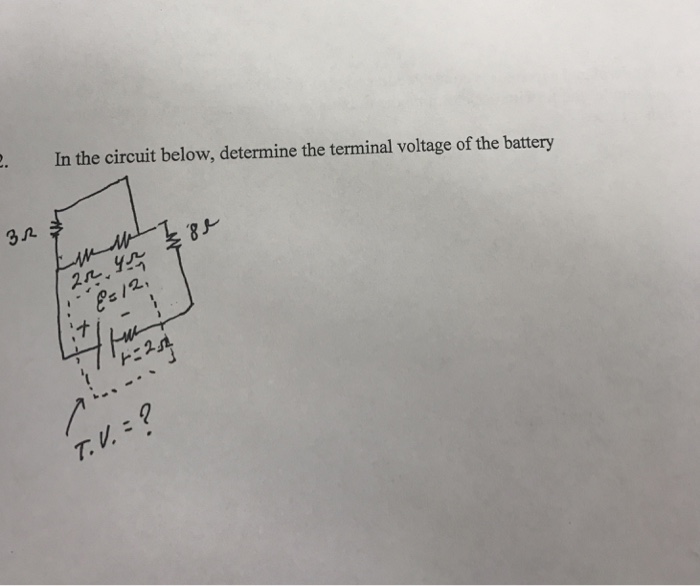 2. In the circuit below, determine the terminal voltage of the battery
3Ω
8Ω
2Ω 4Ω
ℰ=12
+ -
r=2Ω
T.V. = ?